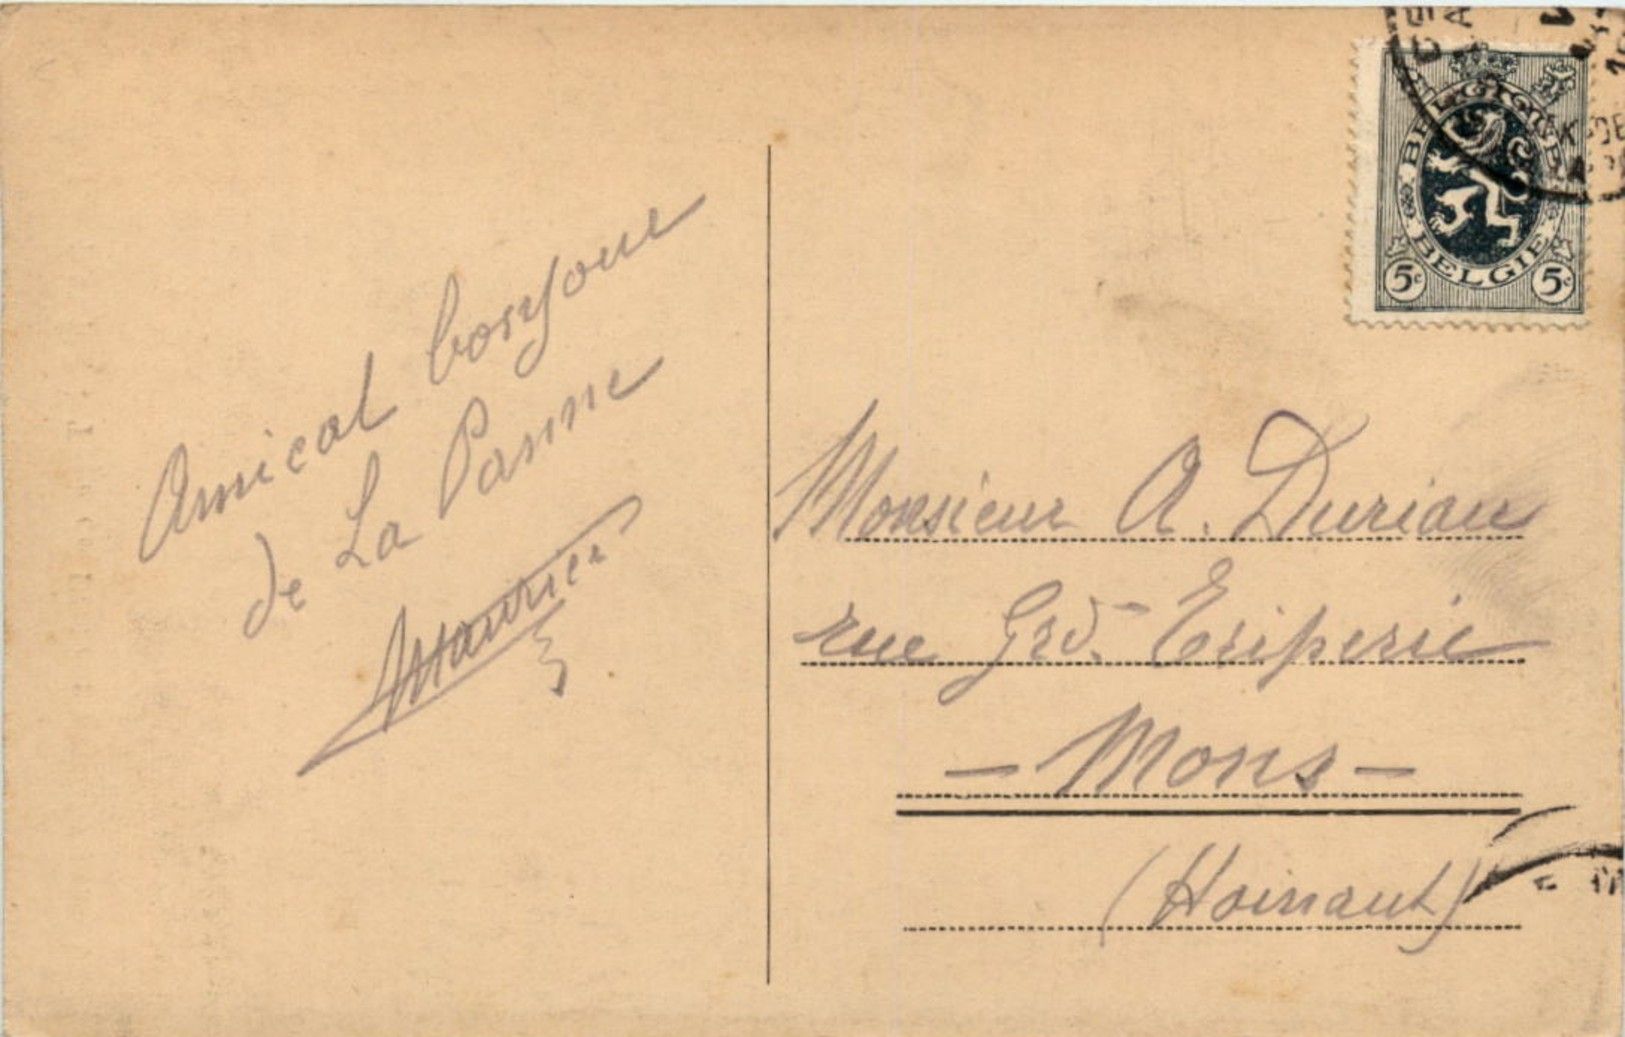 Amical bonjour
de La Panne
Maurice
BELGIQUE
BELGIE
5c 5c
Monsieur A. Duriau
rue Grd.
- Mons -
(Hainaut)